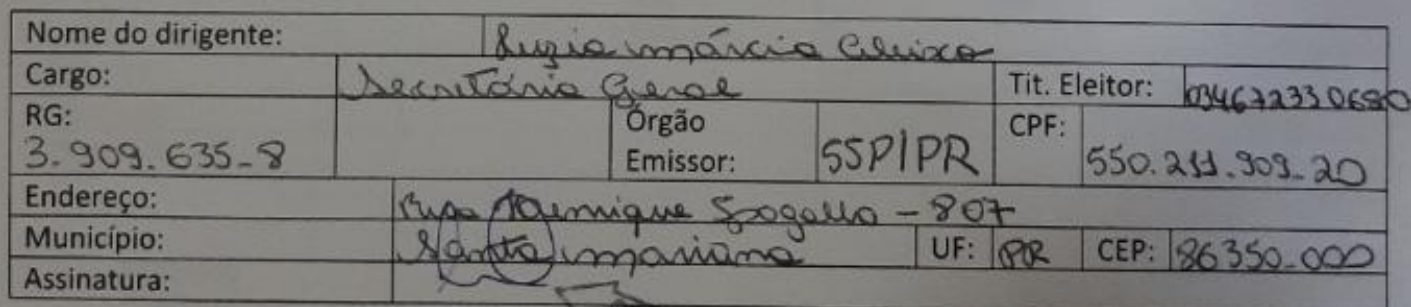 Nome do dirigente: Luzia márcia Aleixo
Cargo: Secretária Geral Tit. Eleitor: 034672330680
RG: 3.909.635-8 Órgão Emissor: SSP/PR CPF: 550.211.909-20
Endereço: Rua Henrique - 807
Município: Santa mariana UF: PR CEP: 86350-000
Assinatura: